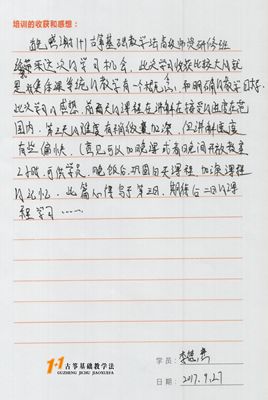 培训的收获和感想:
感谢1+1古筝基础教学法高级师资研修班
给我这次的学习机会,此次学习收获比较大的就
是对整体课系统的教学有一个概念,和明确的教学目标。
此次学习的感想,前两天的课程在讲解在接受的进度在范
围内。第三天的难度有稍微加深,但讲解进度
有些偏快,(意见可以加晚课或者晚间开放教室
2小时,可供学员,晚饭后巩固白天课程,加深课程
的记忆。此篇心得写于第三日,期待后二日的课
程学习……
1+1古筝基础教学法
GUZHENG JICHU JIAOXUEFA
学员:
日期:2017.9.27